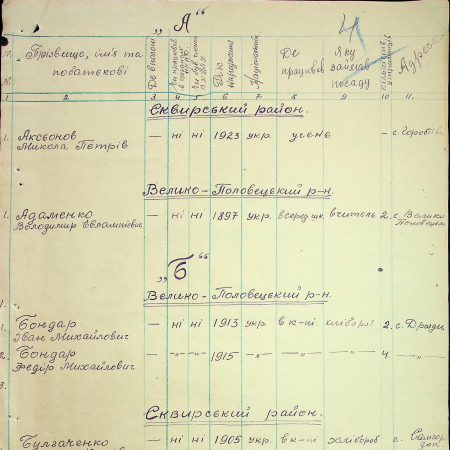 „А“
4
№ Прізвище, ім'я та побатькові Де Рік народження Національність Де працював Яку займав посаду Адреса
1 2 3 4 5 6 7 8 9 10 11.
Сквирський район.
1. Аксьонов Микола Петрів — ні ні 1923 укр. учень — с.
Велико-Половецький р-н.
1. Адаменко Володимир Евлампієвич — ні ні 1897 укр. всеред шк. вчитель 2. с. Велико
„Б“
Велико-Половецький р-н.
1. Бондар Іван Михайлович — ні ні 1913 укр. в к-пі хлібороб 2. с.
2. Бондар Федір Михайлович — -„- -„- 1915 -„- -„- -„- 4. -„-
3.
Сквирський район.
Булгаченко — ні ні 1905 укр. в к-пі хлібороб с.